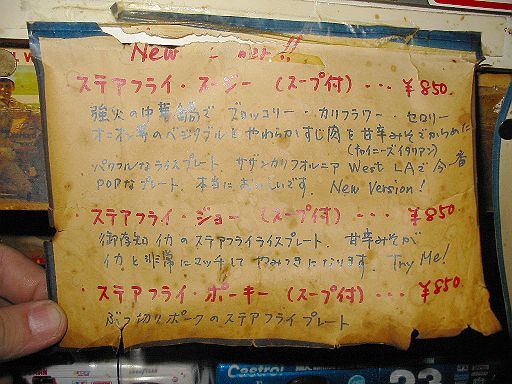 New
ステアフライ・スージー (スープ付) ・・・ ¥850
強火の中華鍋で ブロッコリー・カリフラワー・セロリー
オニオン等のベジタブルとやわらかすじ肉を甘辛みそでからめた
(チャイニーズイタリアン)
パワフルなライスプレート、サザンカリフォルニア West LAで今一番
POPなプレート、本当においしいです。 New Version!
ステアフライ・ジョー (スープ付) ・・・ ¥850
御存知イカのステアフライライスプレート、甘辛みそが
イカと非常にマッチして やみつきになります。 Try Me!
ステアフライ・ポーキー (スープ付) ・・・ ¥850
ぶつ切りポークのステアフライプレート
Castrol
23